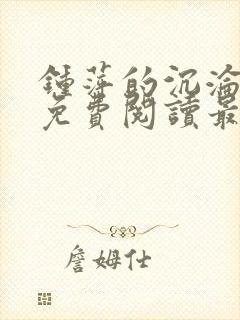 鍾萍的沉淪
免費閱讀最
詹姆仕